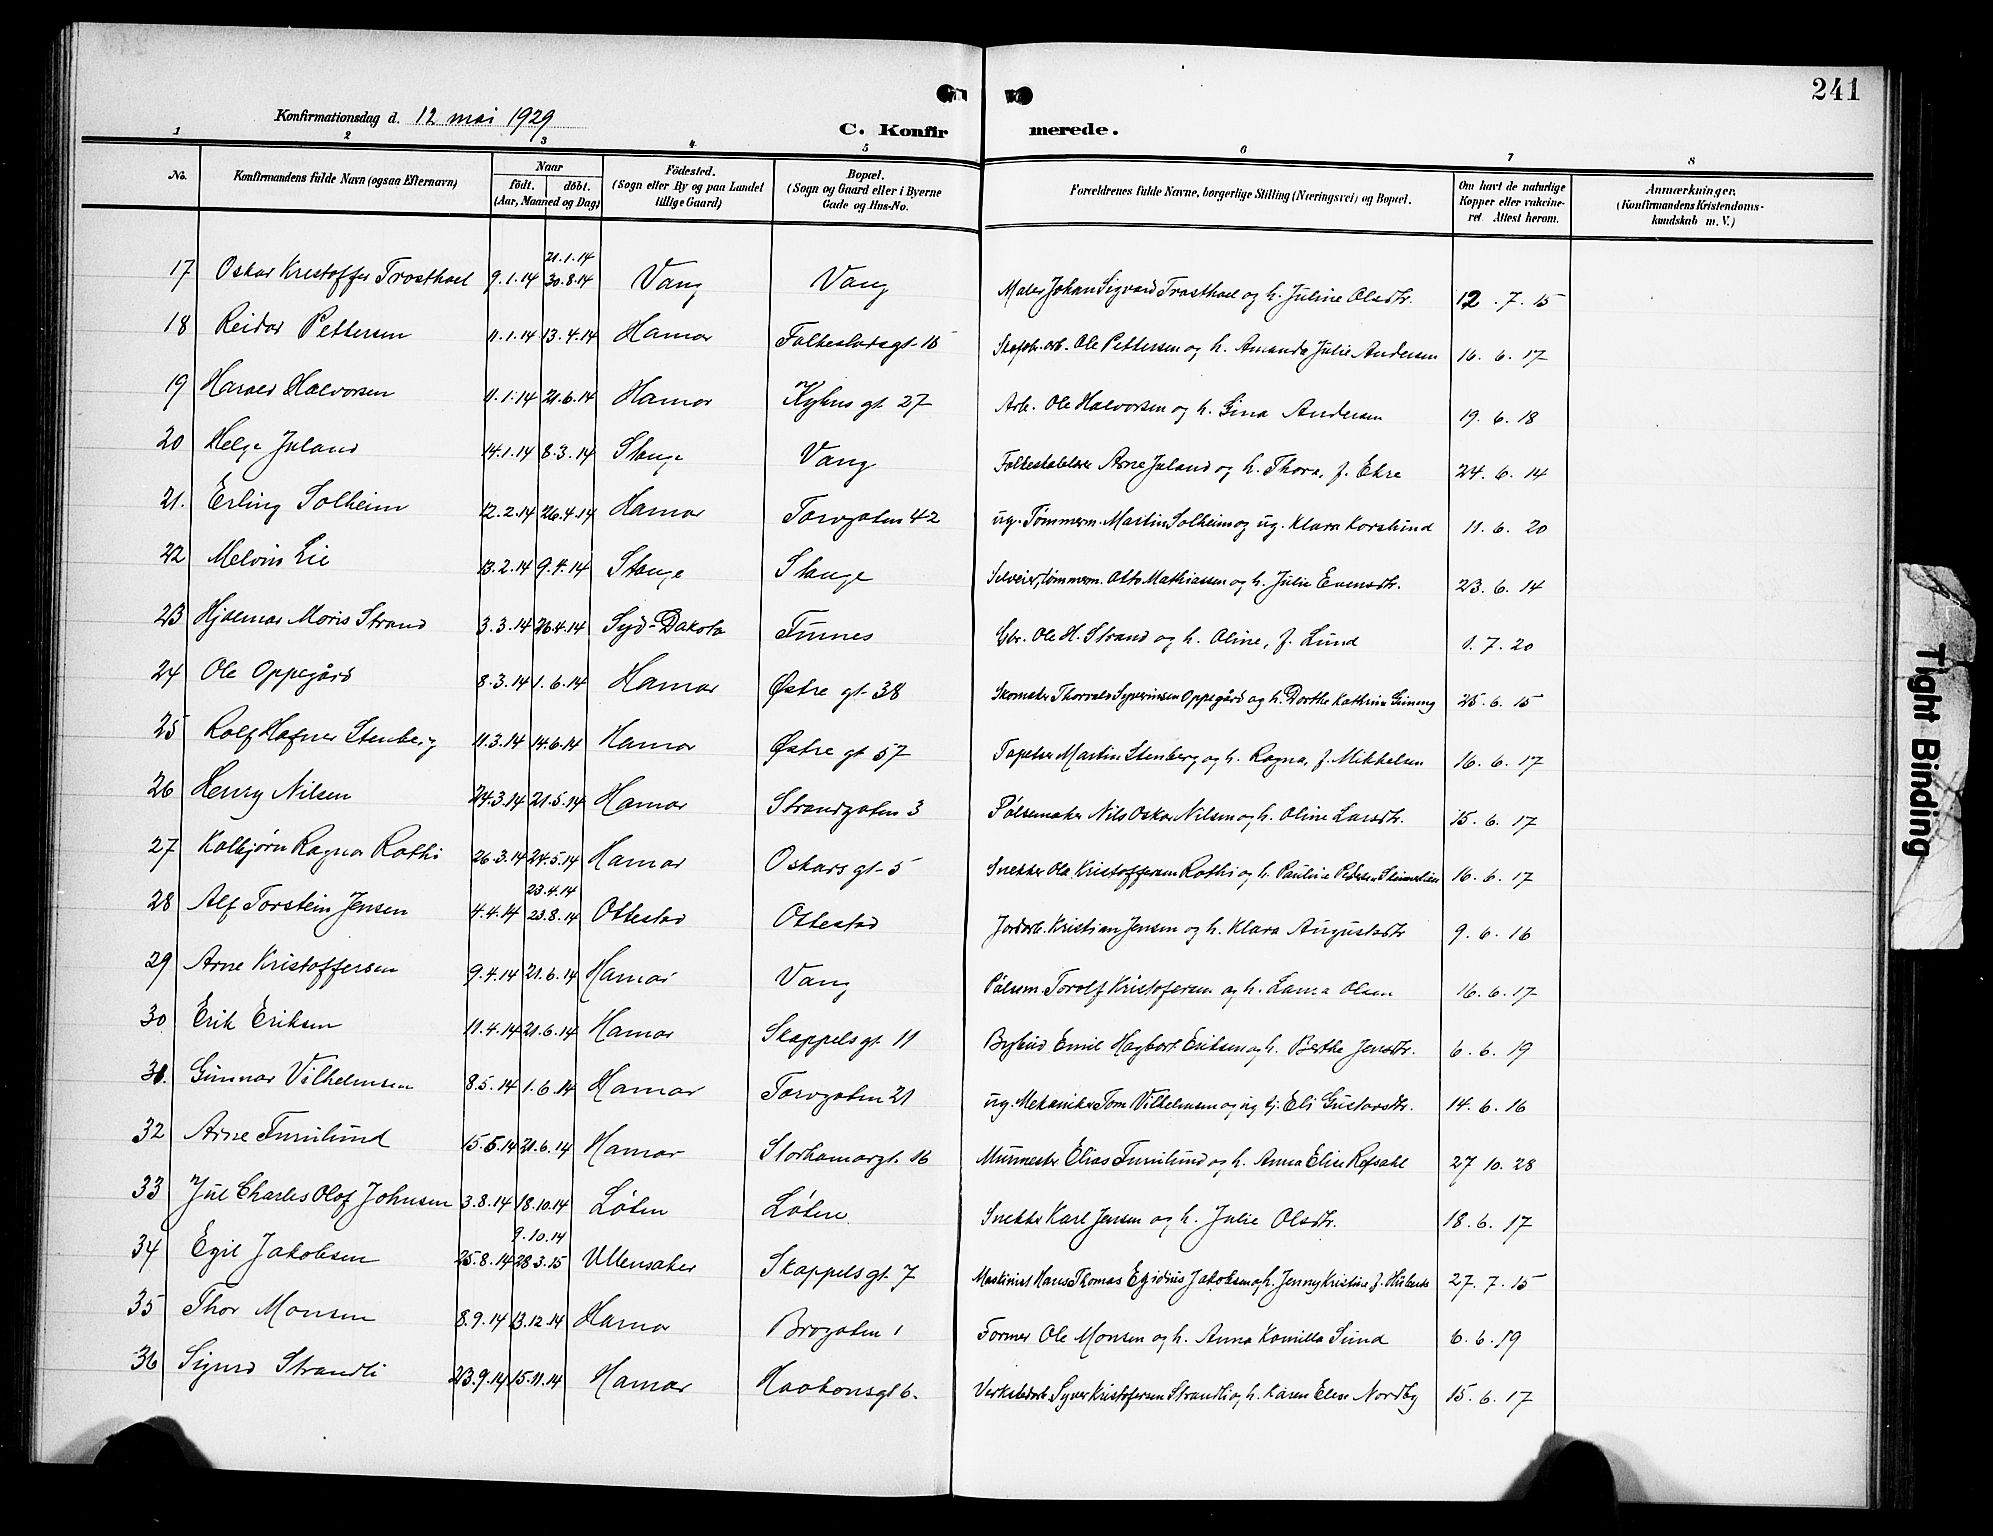 241
Konfirmationsdag d. 12 mai 1929
C. Konfirmerede.
1 2 3 4 5 6 7 8
No.
Konfirmandens fulde Navn (ogsaa Efternavn)
Naar
født. døbt.
(Aar, Maaned og Dag)
Fødested.
(Sogn eller By og paa Landet
tillige Gaard)
Bopæl.
(Sogn og Gaard eller i Byerne
Gade og Hus-No.
Forældrenes fulde Navne, borgerlige Stilling (Næringsvei) og Bopæl.
Om havt de naturlige
Kopper eller vakcine-
ret. Attest herom.
Anmærkninger.
(Konfirmandens Kristendoms-
kundskab m. V.)
21.1.14
17 Oskar Kristoffer Trosthoel 9.1.14 30.8.14 Vang Vang Maler Johan Sigvard Trosthoel og h. Juline Olsdtr. 12.7.15
18 Reidar Pettersen 11.1.14 13.4.14 Hamar Falkestadsgt. 18 Skofabr. arb. Ole Pettersen og h. Amanda Julie Andersen 16.6.17
19 Harald Halvorsen 11.1.14 21.6.14 Hamar Kyhns gt. 27 Arb. Ole Halvorsen og h. Gina Andersen 19.6.18
20 Helge Juland 14.1.14 8.3.14 Stange Vang Arne Juland og h. Thora, f. Ekre 24.6.14
21. Erling Solheim 12.2.14 26.4.14 Hamar Torvgaten 42 ug. Tømmerm. Martin Solheim og ug. Klara Korslund 11.6.20
22 Melvin Lie 13.2.14 9.4.14 Stange Stange Selveier, tømmerm. Otto Mathiassen og h. Julie Evensdtr. 23.6.14
23 Hjalmar Moris Strand 3.3.14 26.4.14 Syd-Dakota Furnes Gbr. Ole H. Strand og h. Oline, f. Lund 1.7.20
24 Ole Oppegård 8.3.14 1.6.14 Hamar Østre gt. 38 Skomaker Thorvald Syverinsen Oppegård og h. Dorthe Kathrine Gning 25.6.15
25 Rolf Hafner Stenberg 11.3.14 14.6.14 Hamar Østre gt. 57 Tapetser Martin Stenberg og h. Ragna, f. Mikkelsen 16.6.17
26 Henry Nilsen 24.3.14 21.5.14 Hamar Strandgaten 3 Pølsemaker Nils Oskar Nilsen og h. Oline Larsdtr. 15.6.17
27 Kolbjørn Ragnar Rothi 26.3.14 24.5.14 Hamar Oskars gt. 5 Snekker Ole Kristoffersen Rothi og h. Pauline Pedersen 16.6.17
23.4.14
28 Alf Torstein Jensen 4.4.14 23.8.14 Ottestad Ottestad Jordarb. Kristian Jensen og h. Klara Augustsdtr 9.6.16
29 Arne Kristoffersen 9.4.14 21.6.14 Hamar Vang Pølsem. Torolf Kristofersen og h. Laura Olsen 16.6.17
30 Erik Eriksen 11.4.14 21.6.14 Hamar Skappels gt. 11 Bybud Emil Hagbart Eriksen og h. Berthe Jensdtr. 6.6.19
31. Gunnar Vilhelmsen 8.5.14 1.6.14 Hamar Torvgaten 21 ug. Mekaniker Tom Vilhelmsen og ug tj. Eli Gustavsdtr. 14.6.16
32 Arne Furulund 15.5.14 21.6.14 Hamar Storhamargt. 16 Murmester Elias Furulund og h. Anna Elise Refsahl 27 10. 28
33 Jul Charles Olof Johnsen 3.8.14 18.10.14 Løten Løten Snekker Karl Jensen og h. Julie Olsdtr. 18.6.17
9.10.14
34 Egil Jakobsen 25.8.14 28.3.15 Ullensaker Skappels gt. 7 Maskinist Hans Thomas Egidius Jakobsen og h. Jenny Kristine f. 27.7.15
35 Thor Monsen 8.9.14 13.12.14 Hamar Brogaten 1 Former Ole Monsen og h. Anna Kamilla Sund 6.6.19
36 Sigurd Strandli 23.9.14 15.11.14 Hamar Haakonsgt 6. Verkstedarb. Syver Kristofersen Strandli og h. Karen Elise Nordby 15.6.17
Tight Binding